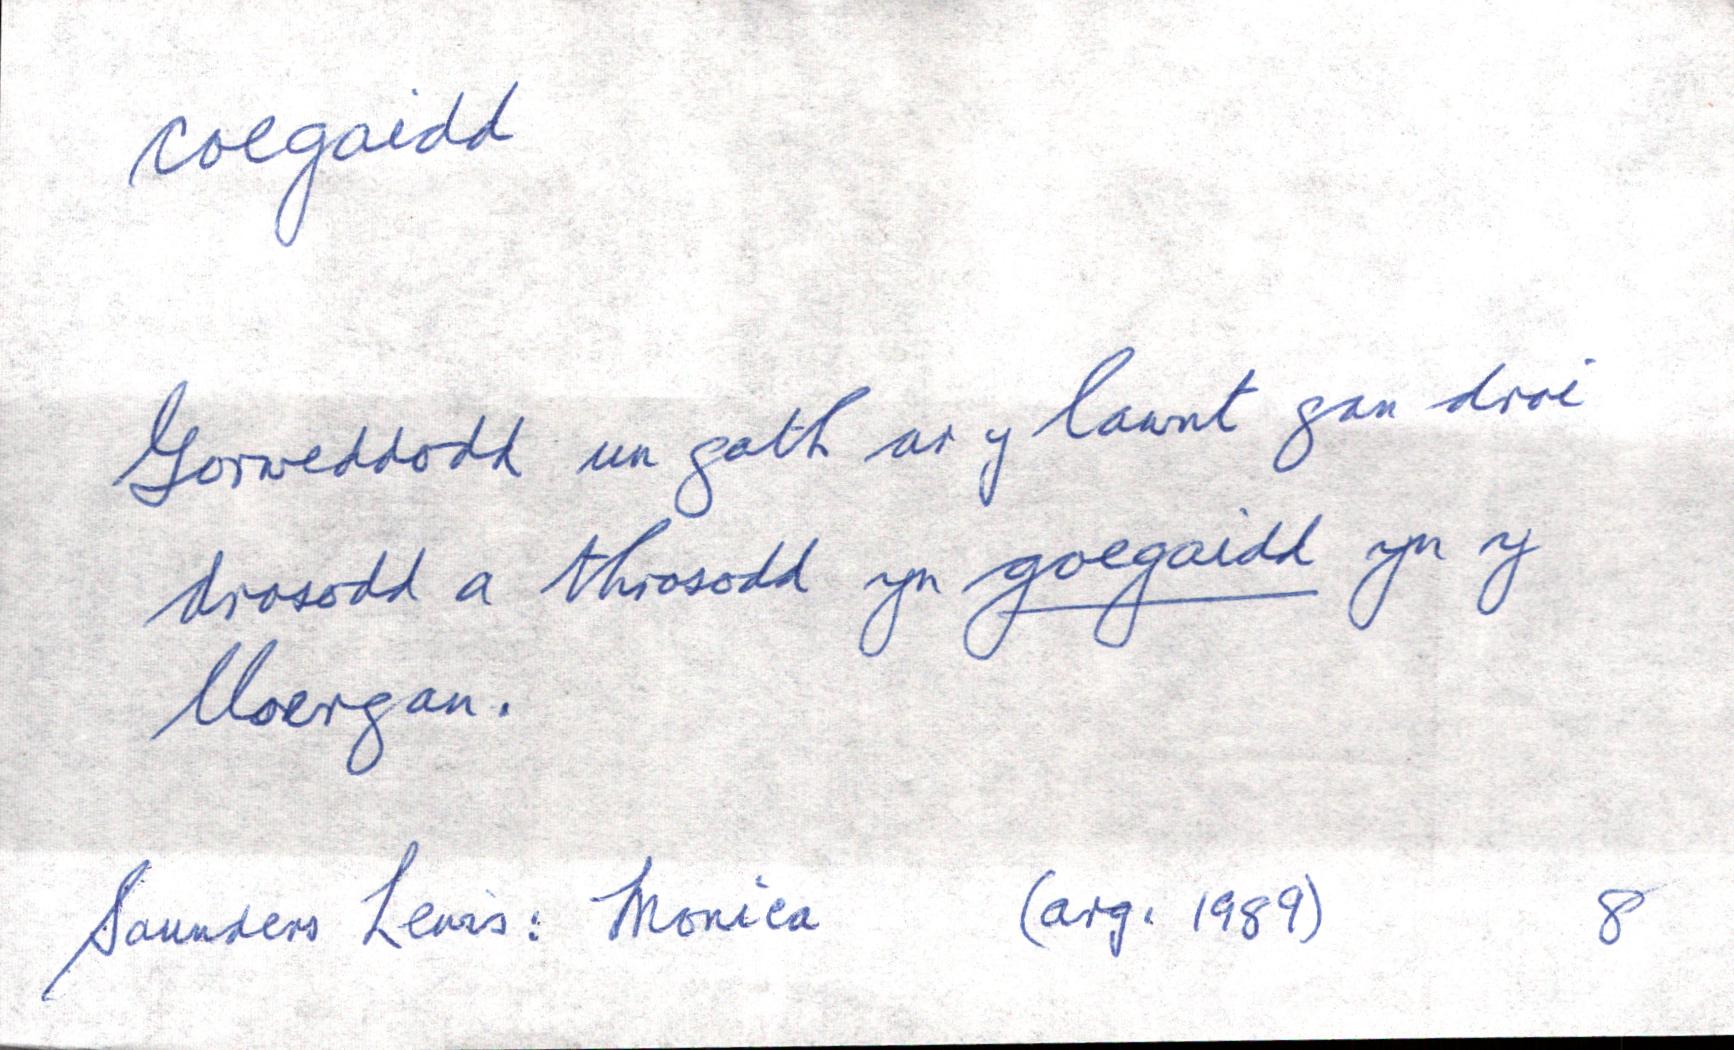 coegaidd
Gorweddodd un gath ar y lawnt gan droi
drosodd a throsodd yn goegaidd yn y
lloergan.
Saunders Lewis: Monica (arg. 1989) 8